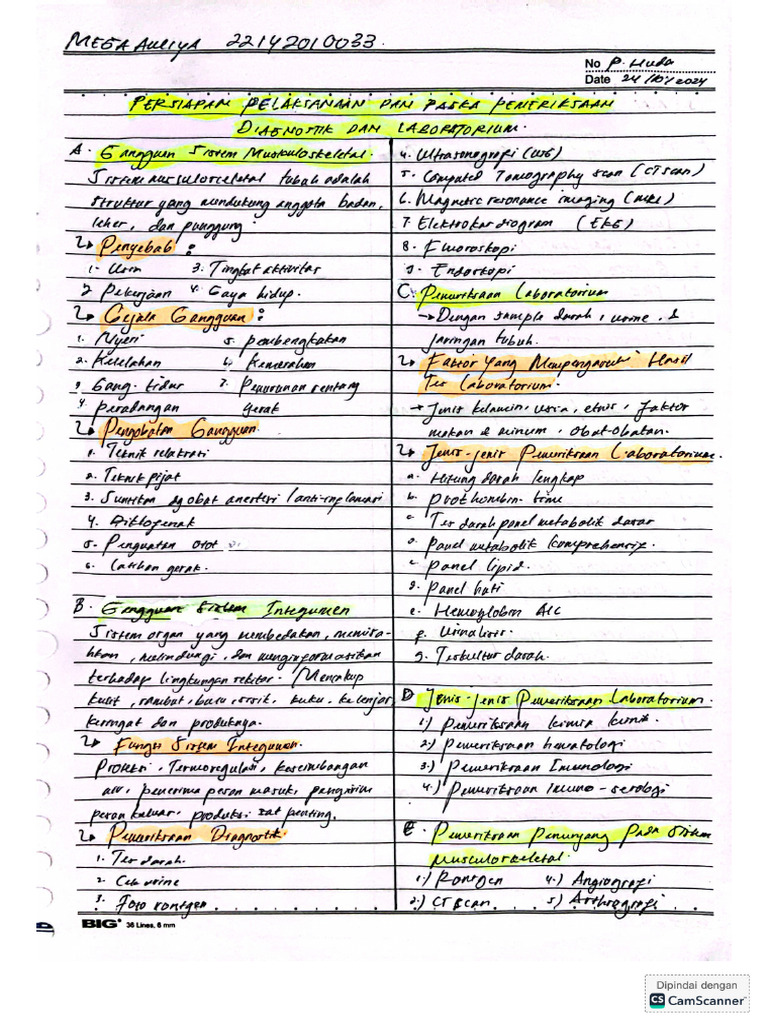 MEGA AULIYA 22142010033.
No P. Huda
Date 24/10/2024
PERSIAPAN PELAKSANAAN DAN PASKA PEMERIKSAAN
DIAGNOSTIK DAN LABORATORIUM.
A. Gangguan Sistem Muskuloskeletal.
Sistem musculoskeletal tubuh adalah
struktur yang mendukung anggota badan,
leher, dan punggung.
↳ Penyebab :
1. Usia 3. Tingkat aktivitas
2. Pekerjaan 4. Gaya hidup.
↳ Gejala Gangguan :
1. Nyeri 5. pembengkakan
2. Kelelahan 6. Kemerahan
3. Gang. tidur 7. Penurunan rentang
4. peradangan gerak
↳ Pengobatan Gangguan.
1. Teknik relaksasi
2. Teknik pijat
3. Suntikan dg obat anestesi / anti-inflamasi
4. Diklofenak
5. Penguatan otot
6. Latihan gerak.
B. Gangguan Sistem Integumen
Sistem organ yang membedakan, memisa-
hkan, melindungi, dan menginformasikan
terhadap lingkungan sekitar. Mencakup
kulit, rambut, bulu, sisik, kuku, kelenjar
keringat dan produknya.
↳ Fungsi Sistem Integumen.
Proteksi, Termoregulasi, keseimbangan
air, penerima pesan masuk, pengirim
pesan keluar, produksi zat penting.
↳ Pemeriksaan Diagnostik.
1. Tes darah.
2. Cek urine
3. Foto rontgen
4. Ultrasonografi (USG)
5. Computed Tomography scan (CT scan)
6. Magnetic resonance imaging (MRI)
7. Elektrokardiogram (EKG)
8. Fluoroskopi
9. Endoskopi
C. Pemeriksaan Laboratorium
→ Dengan sample darah, urine, &
jaringan tubuh.
↳ Faktor yang Mempengaruhi Hasil
Tes Laboratorium.
→ Jenis kelamin, usia, etnis, faktor
makan & minum, obat-obatan.
↳ Jenis-jenis Pemeriksaan Laboratorium.
a. Hitung darah lengkap
b. prothombin time
c. Tes darah panel metabolik dasar
d. panel metabolik komprehensif.
c. panel lipid.
d. panel hati
e. Hemoglobin A1C
f. Urinalisis.
g. Tes kultur darah.
D Jenis-Jenis Pemeriksaan Laboratorium.
1.) Pemeriksaan kimia klinik.
2.) Pemeriksaan hematologi
3.) Pemeriksaan Imunologi
4.) Pemeriksaan Imuno-serologi
E. Pemeriksaan Penunjang Pada Sistem
Musculoskeletal.
1.) Rontgen 4.) Angiografi
2.) CT Scan 5.) Arthrografi
BIG 36 Lines, 6 mm
Dipindai dengan
CS CamScanner